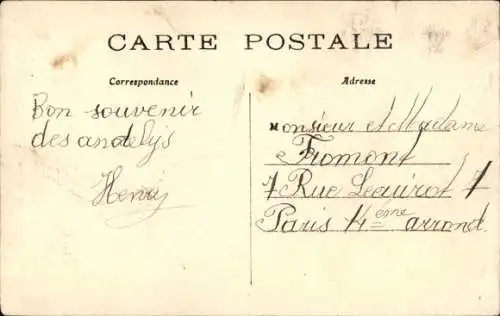 CARTE POSTALE
Correspondance
Adresse
Bon souvenir
des andelys
Henry
Monsieur et Madame
Fromont
7 Rue 7
Paris 14 ème arrond.